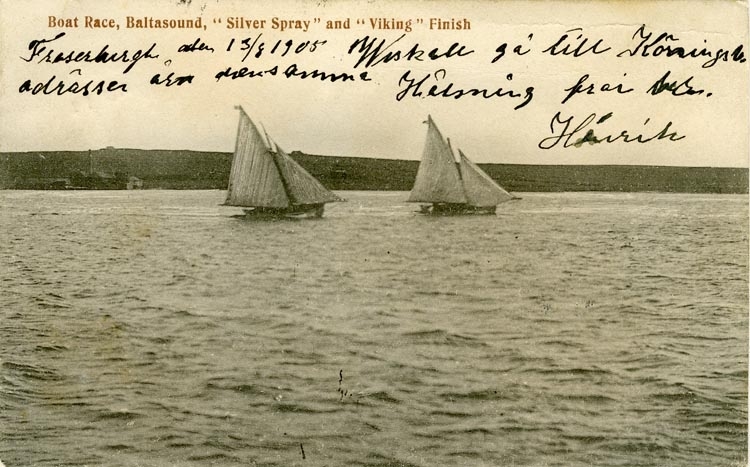 Boat Race, Baltasound, "Silver Spray" and "Viking" Finish
Fraserburgh den 13/8 1905 Wi skall gå till Köningsb
adrässer är densamma Hälsning från
Hinrik